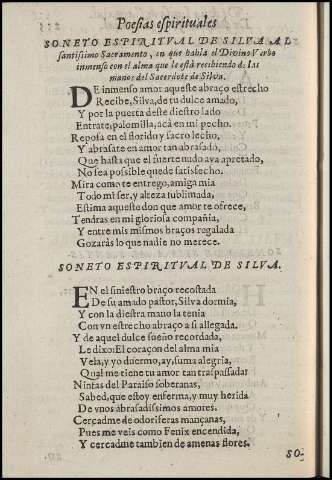 Poesias espirituales
SONETO ESPIRITVAL DE SILVA AL
santissimo Sacramento, en que habla el Divino Verbo
inmenso con el alma que le está recibiendo de las
manos del Sacerdote de Silva.
DE inmenso amor aqueste abraço estrecho
Recibe, Silva, de tu dulce amado,
Y por la puerta deste diestro lado
Entrate, palomilla, acà en mi pecho.
Reposa en el florido y sacro lecho,
Y abrasate en amor tan abrasado,
Que hasta que el fuerte nudo aya apretado,
No sea possible quede satisfecho.
Mira como te entrego, amiga mia
Todo mi ser, y alteza sublimada,
Estima aqueste don que amor te ofrece,
Tendras en mi gloriosa compañia,
Y entre mis mismos braços regalada
Gozarás lo que nadie no merece.
SONETO ESPIRITVAL DE SILVA.
EN el siniestro braço recostada
De su amado pastor, Silva dormia,
Y con la diestra mano la tenia
Con vn estrecho abraço a si allegada.
Y de aquel dulce sueño recordada,
Le dixo: El coraçon del alma mia
Vela, y yo duermo, ay, suma alegria,
Qual me tiene tu amor tan traspassada!
Ninfas del Paraiso soberanas,
Sabed, que estoy enferma, y muy herida
De vnos abrasadissimos amores.
Cercadme de odoriferas mançanas,
Pues me veis como Fenix encendida,
Y cercadme tambien de amenas flores.
SO-